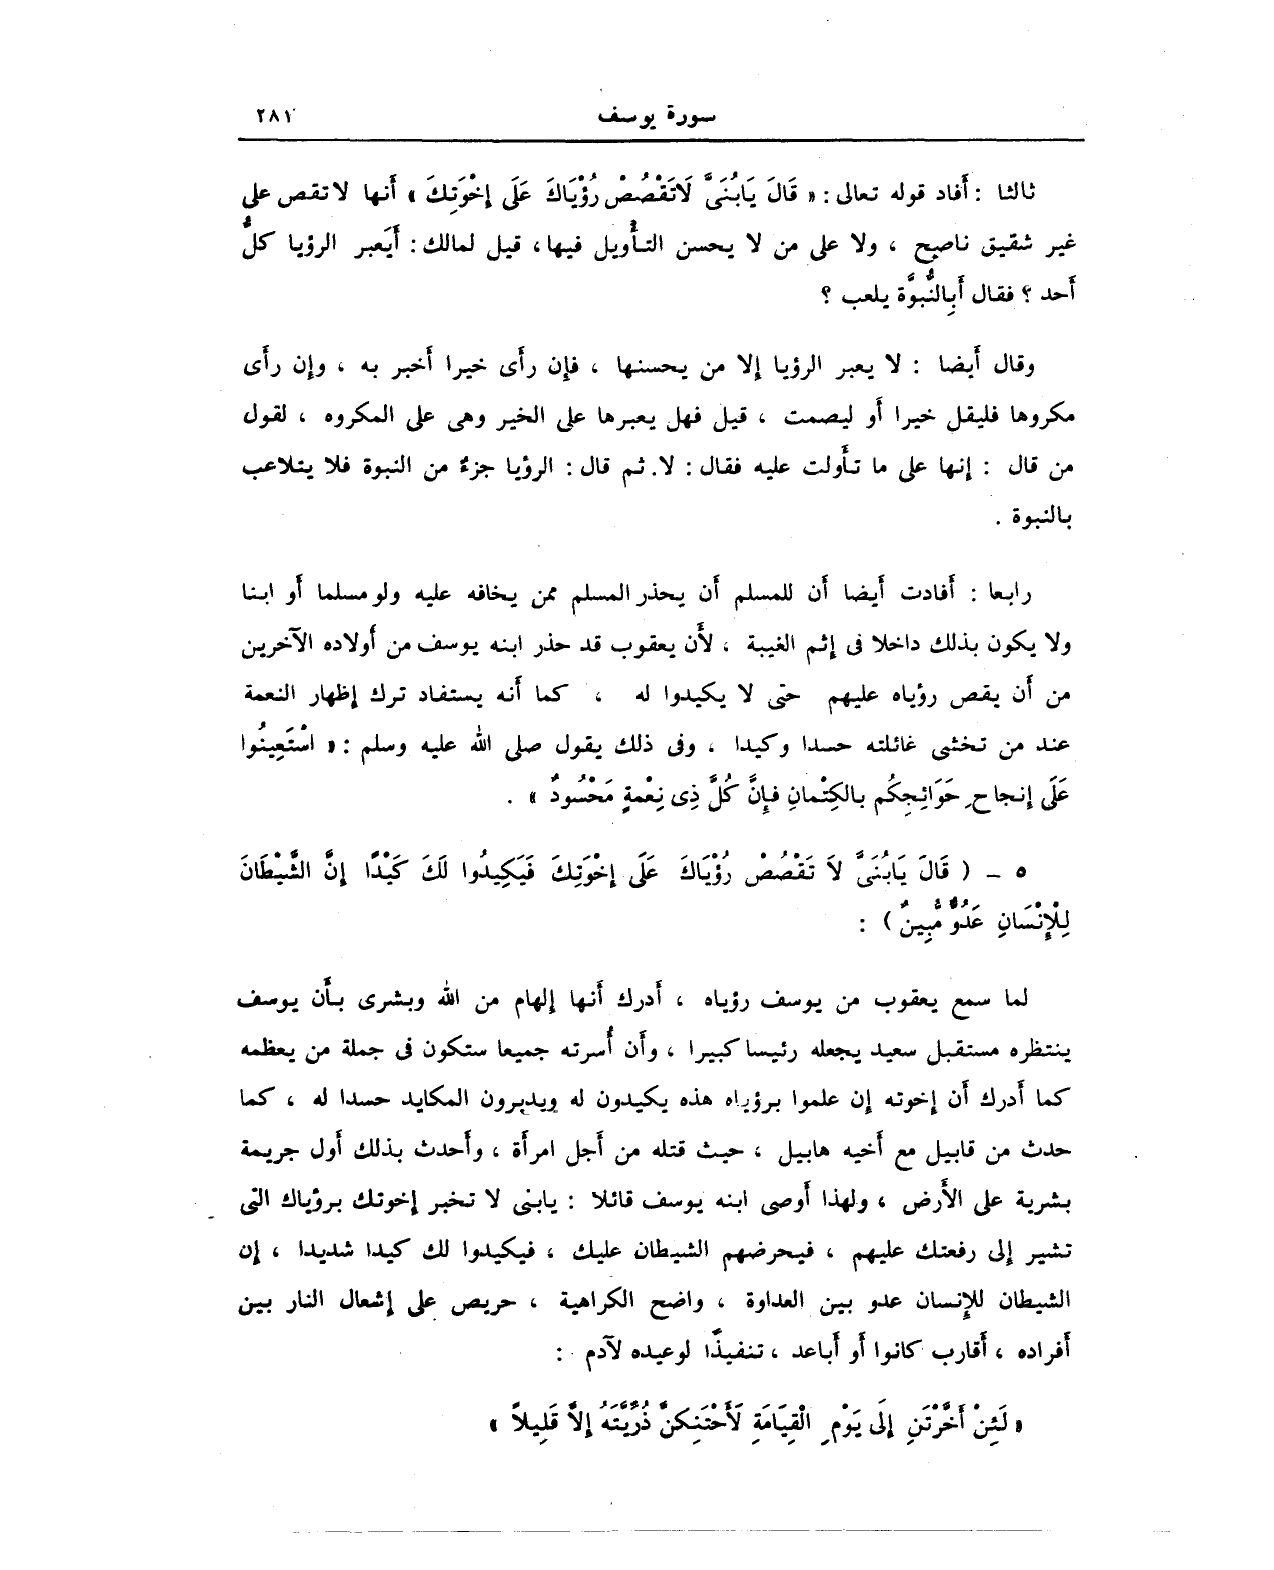 سورة يوسف ٢٨١
ثالثا : أفاد قوله تعالى : « قَالَ يَابُنَىَّ لَاتَقْصُصْ رُؤْيَاكَ عَلَى إخْوَتِكَ » أنها لا تقص على
غير شقيق ناصح ، ولا على من لا يحسن التأويل فيها ، قيل لمالك : أَيَعبر الرؤيا كلُّ
أحد ؟ فقال أَبِالنُّبوَّة يلعب ؟
وقال أيضا : لا يعبر الرؤيا إلا من يحسنها ، فإن رأى خيرا أخبر به ، وإن رأى
مكروها فليقل خيرا أو ليصمت ، قيل فهل يعبرها على الخير وهى على المكروه ، لقول
من قال : إنها على ما تأولت عليه فقال : لا. ثم قال : الرؤيا جزءٌ من النبوة فلا يتلاعب
بالنبوة .
رابعا : أفادت أيضا أن للمسلم أن يحذر المسلم ممن يخافه عليه ولو مسلما أو ابنا
ولا يكون بذلك داخلا فى إثم الغيبة ، لأن يعقوب قد حذر ابنه يوسف من أولاده الآخرين
من أن يقص رؤياه عليهم حتى لا يكيدوا له ، كما أنه يستفاد ترك إظهار النعمة
عند من تخشى غائلته حسدا وكيدا ، وفى ذلك يقول صلى الله عليه وسلم : « اسْتَعِينُوا
عَلَى إنجاحِ حَوَائِجِكُم بالكِتْمانِ فإِنَّ كُلَّ ذِى نِعْمةٍ مَحْسُودٌ » .
٥ - ( قَالَ يَابُنَىَّ لاَ تَقْصُصْ رُؤْيَاكَ عَلَى إخْوَتِكَ فَيَكِيدُوا لَكَ كَيْدًا إنَّ الشَّيْطَانَ
لِلْإِنْسَانِ عَدُوٌّ مُّبِينٌ ) :
لما سمع يعقوب من يوسف رؤياه ، أدرك أنها إلهام من الله وبشرى بأن يوسف
ينتظره مستقبل سعيد يجعله رئيسا كبيرا ، وأن أُسرته جميعا ستكون فى جملة من يعظمه
كما أدرك أن إخوته إن علموا برؤياه هذه يكيدون له ويدبرون المكايد حسدا له ، كما
حدث من قابيل مع أخيه هابيل ، حيث قتله من أجل امرأة ، وأحدث بذلك أول جريمة
بشرية على الأرض ، ولهذا أوصى ابنه يوسف قائلا : يابنى لا تخبر إخوتك برؤياك التى
تشير إلى رفعتك عليهم ، فيحرضهم الشيطان عليك ، فيكيدوا لك كيدا شديدا ، إن
الشيطان للإنسان عدو بين العداوة ، واضح الكراهية ، حريص على إشعال النار بين
أفراده ، أقارب كانوا أو أباعد ، تنفيذًا لوعيده لآدم :
« لَئِنْ أَخَّرْتَنِ إلَى يَوْمِ الْقِيَامَةِ لَأَحْتَنِكنَّ ذُرِّيَّتَهُ إلاَّ قَلِيلاً »